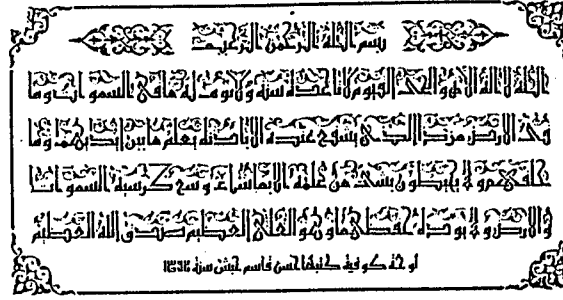 بسم الله الرحمن الرحيم
الله لا إله إلا هو الحي القيوم لا تأخذه سنة ولا نوم له ما في السموات وما
في الأرض من ذا الذي يشفع عنده إلا بإذنه يعلم ما بين أيديهم وما
خلفهم ولا يحيطون بشيء من علمه إلا بما شاء وسع كرسيه السموات
والأرض ولا يؤده حفظهما وهو العلي العظيم صدق الله العظيم
لوحة كوفية كتبها حسن قاسم حبش سنة